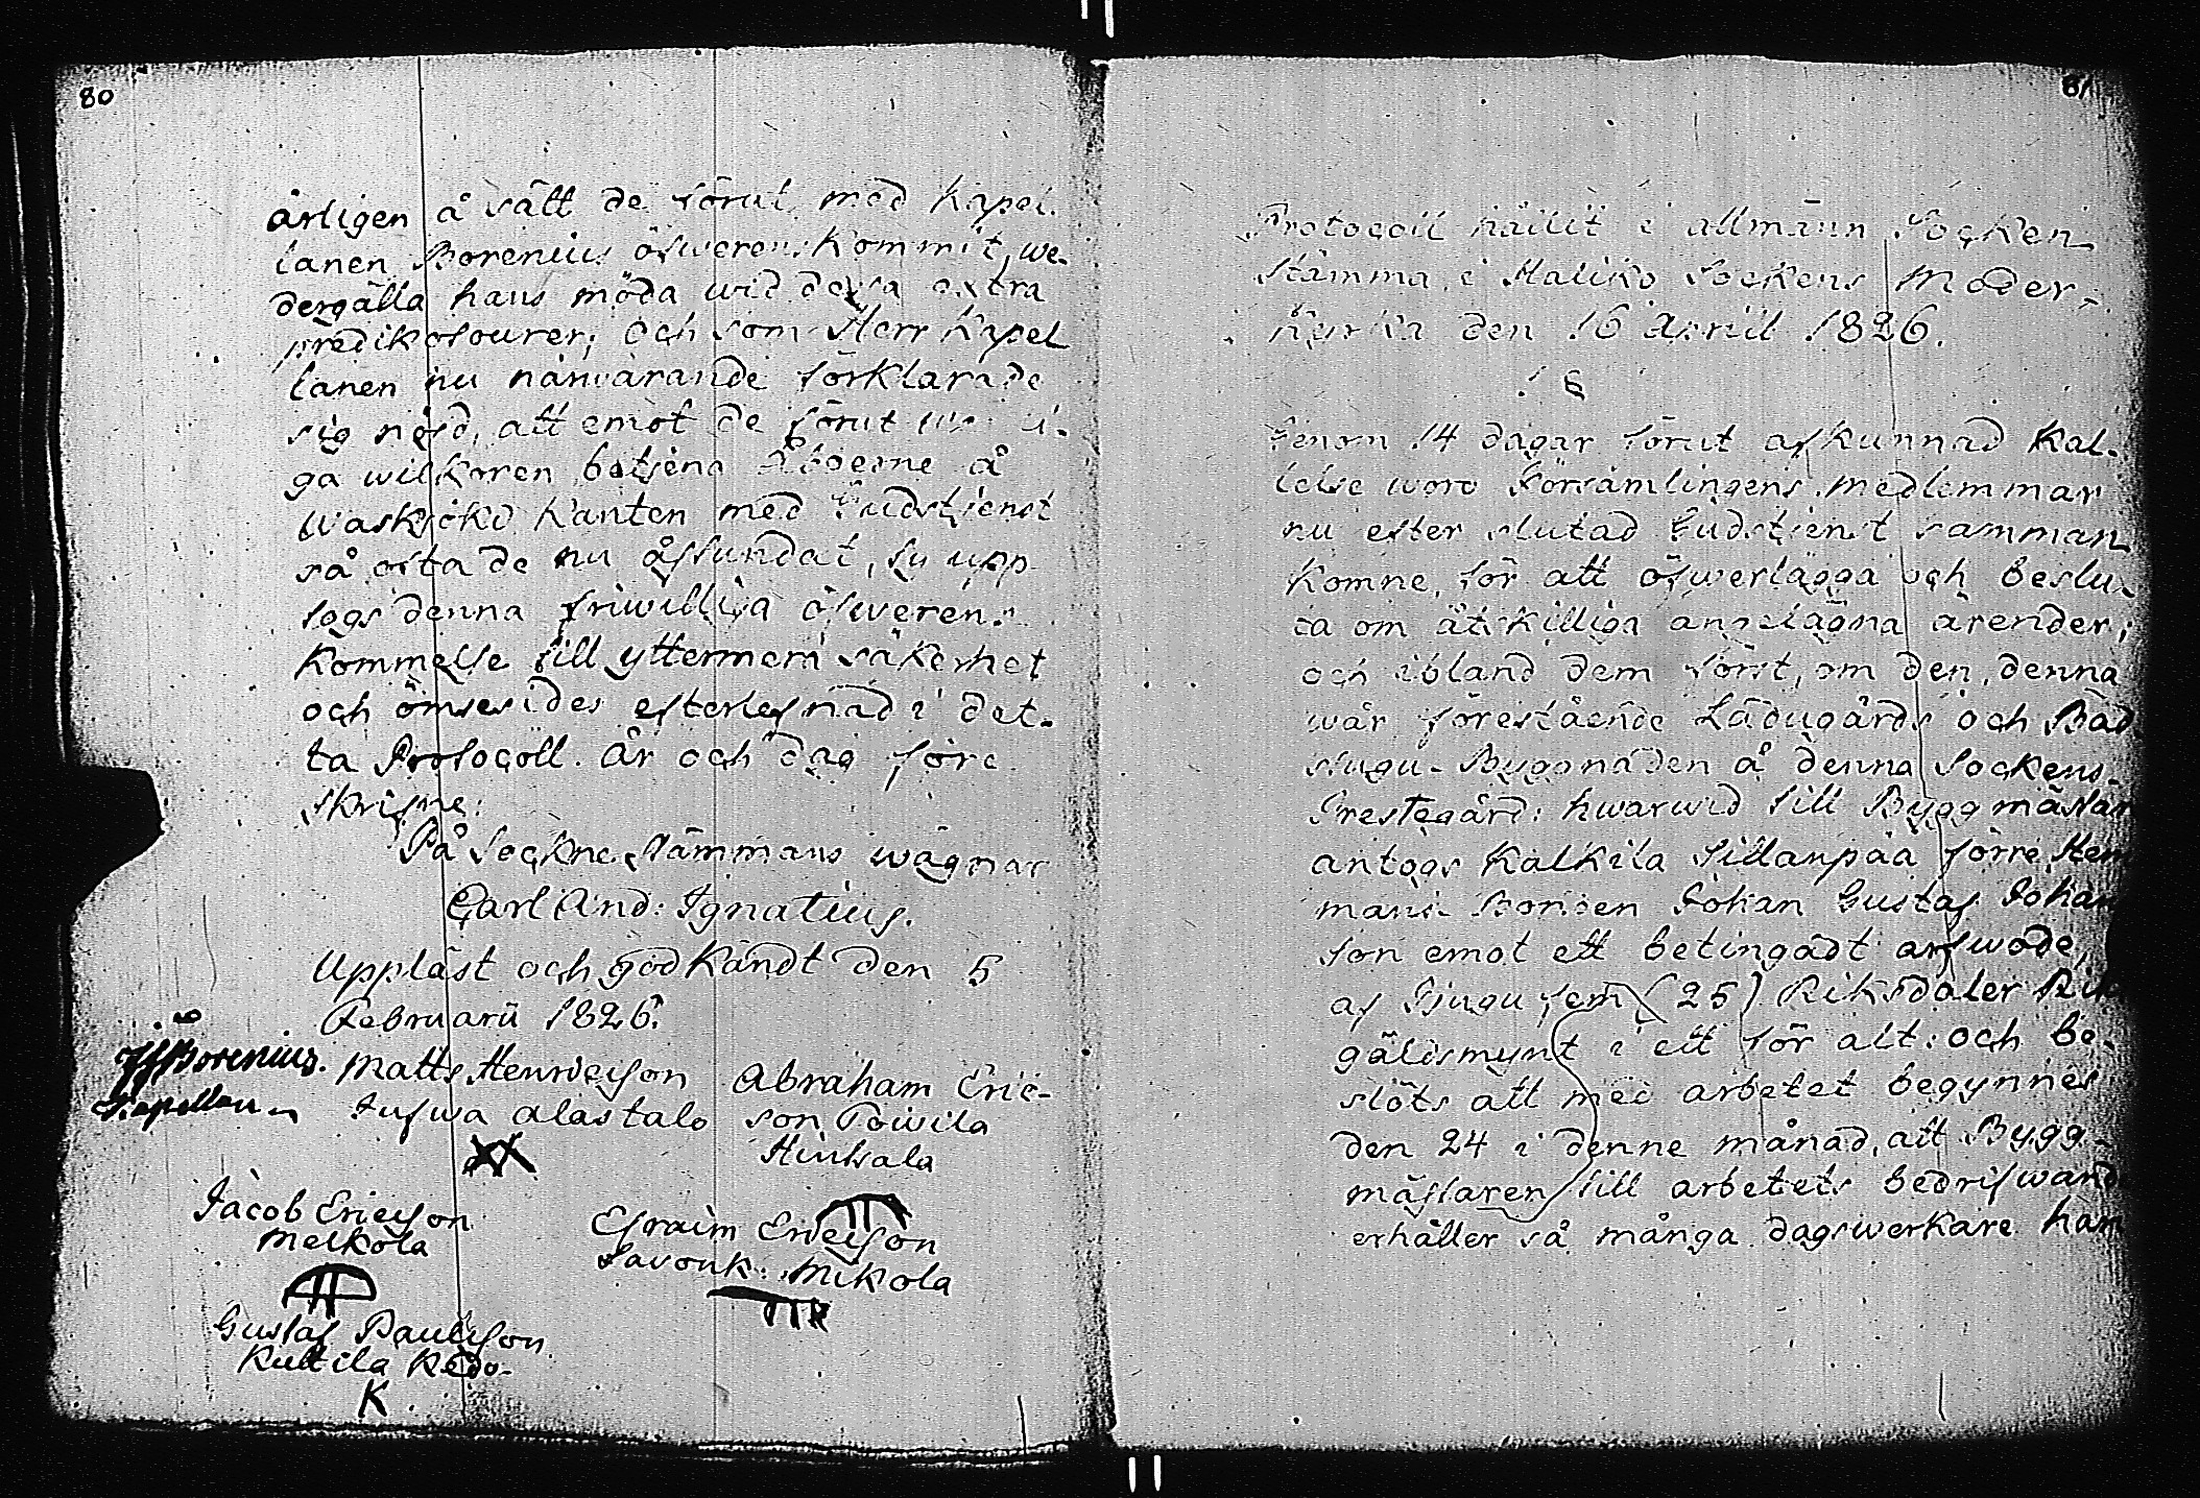 80
årligen å sätt de förut med Kapel-
lanen Borenius öfwerenskommit, we-
dergälla hans möda wid dessa extra
predikotourer; och som Herr Kapel
lanen nu närwarande förklarade
sig nöjd, att emot de förut
ga wilkoren betjena Åboerne å
Waskjöko kanten med Gudstjenst
så ofta de nu åstundat, så upp
togs denna friwilliga öfwerens-
kommelse till yttermera säkerhet
och ömsesides efterlefnad i det-
ta Protocoll. År och dag före
skrifne.
På Sockne Stämmans wägnar
Carl And: Ignatius.
Uppläst och godkändt den 5
Februarii 1826.
Borenius.
Kapellan
Matts Henricsson
Tufwa Alastalo
Abraham Eric-
son Poiwila
Hinkala
Jacob Ericsson
Melkola
Efraim Ericsson
Savonk. Mikola
Gustaf Paulsson
Kultila Kedo-
K
81
Protocoll hållit i allmänn Socken
stämma i Haliko Sockens Moder-
kyrka den 16 April 1826.
1 §
Genom 14 dagar förut afkunnad kal-
lelse woro Församlingens medlemmar
nu efter slutad Gudstjenst samman
komne, för att öfwerlägga och beslu-
ta om åtskilliga angelägna ärender;
och ibland dem först, om den, denna
wår förestående Ladugårds och Bad
stugu-Byggnaden å denna Sockens-
Prestegård: hwarwid till Byggmästar
antogs Kalkila Sillanpää förre Hem
mans Bonden Johan Gustaf Johan
son emot ett betingadt arfwode,
af Tjugu fem (25) Riksdaler Rik
gäldsmynt i ett för alt: och be-
slöts att med arbetet begynnes
den 24 i denne månad, att Bygg-
mästaren till arbetets bedrifwand
erhåller så många dagswerkare han